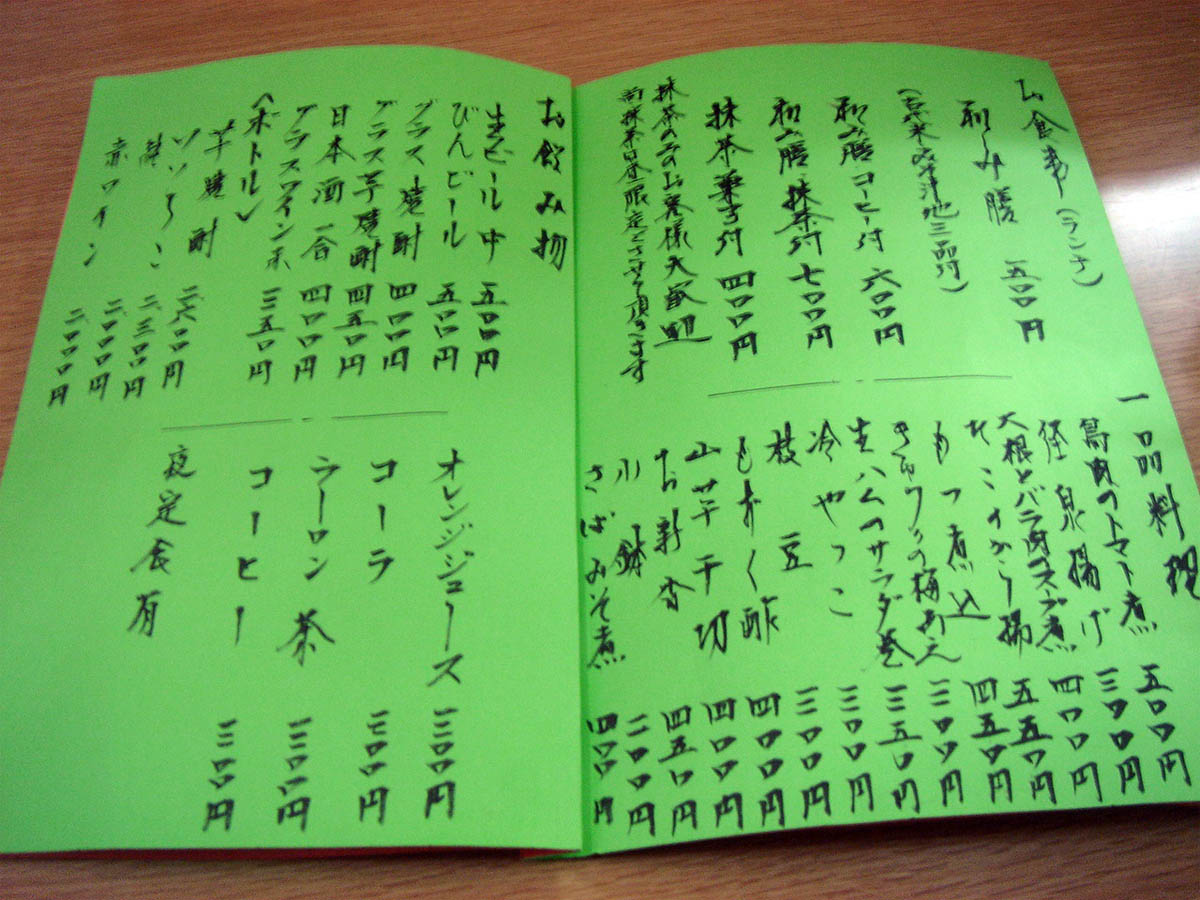 お食事(ランチ)
和み膳 五〇〇円
三品付)
和み膳コーヒー付 六〇〇円
和み膳抹茶付 七〇〇円
抹茶菓子付 四〇〇円
抹茶のみのお客様大歓迎
限定とさせて頂きます
一品料理
鳥肉のトマト煮 五〇〇円
揚げ 三〇〇円
大根とバラ肉のスープ煮 四〇〇円
たこのから揚 五五〇円
もつ煮込 四五〇円
きゅうりの梅あえ 三〇〇円
生ハムのサラダ巻 三五〇円
冷やっこ 三〇〇円
枝豆 三〇〇円
もずく酢 四〇〇円
山芋千切 四〇〇円
お新香 四五〇円
小鉢 二〇〇円
さばみそ煮 四〇〇円
お飲み物
生ビール中 五〇〇円
びんビール 五〇〇円
グラス焼酎 四〇〇円
グラス芋焼酎 四五〇円
日本酒一合 四〇〇円
グラスワイン赤 三五〇円
(ボトル)
芋焼酎 二六〇〇円
二三〇〇円
二〇〇〇円
赤ワイン 二〇〇〇円
オレンジジュース 三〇〇円
コーラ 三〇〇円
ウーロン茶 三〇〇円
コーヒー 三〇〇円
夜定食有